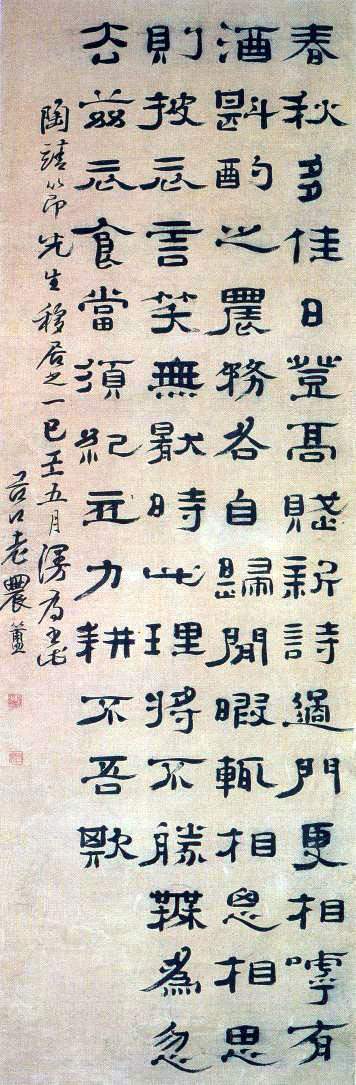 春秋多佳日登高賦新詩過門更相嘑有
酒斟酌之農務各自歸閒暇輒相思相思
則披衣言笑無厭時此理將不勝無為忽
去茲衣食當須紀力耕不吾欺
陶靖節先生移居之一 五月漫為
谷口老農簠